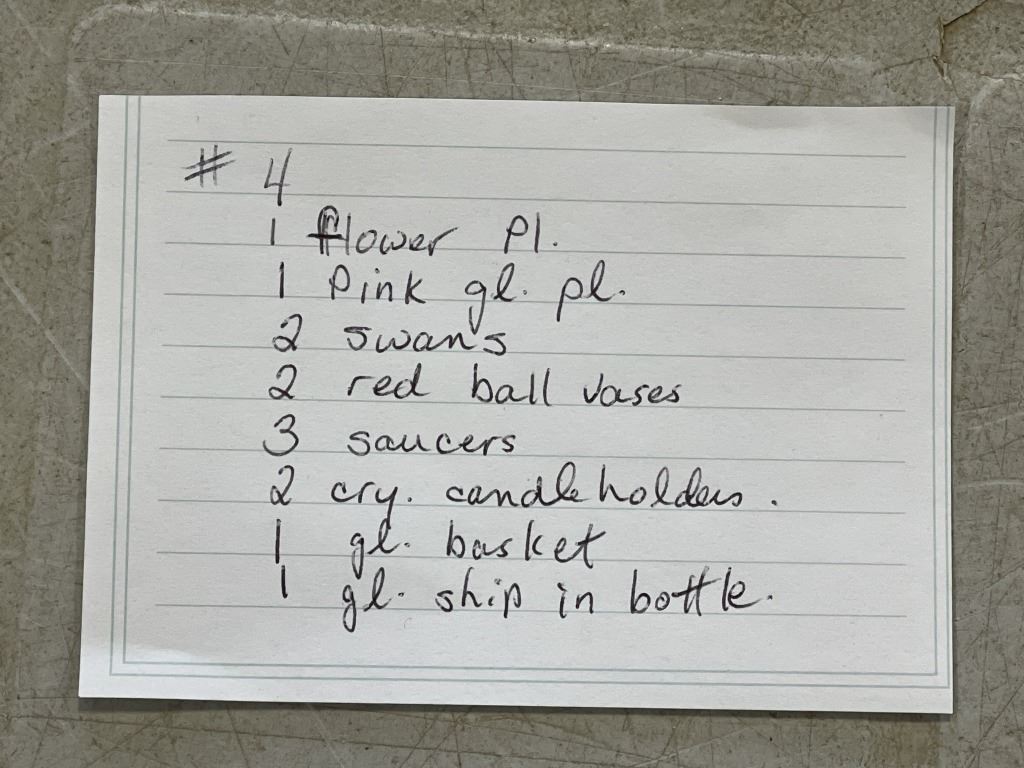 # 4
1 flower Pl.
1 Pink gl. pl.
2 swans
2 red ball vases
3 saucers
2 cry. candle holders.
1 gl. basket
1 gl. ship in bottle.